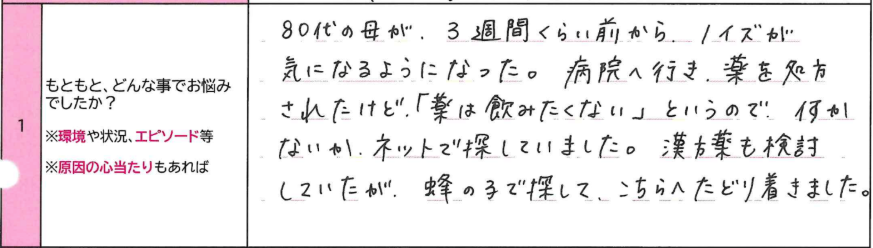 1
もともと、どんな事でお悩み
でしたか？
※環境や状況、エピソード等
※原因の心当たりもあれば
80代の母が、3週間くらい前から、ノイズが
気になるようになった。病院へ行き、薬を処方
されたけど、「薬は飲みたくない」というので、何か
ないか、ネットで探していました。漢方薬も検討
していたが、蜂の子で探して、こちらへたどり着きました。